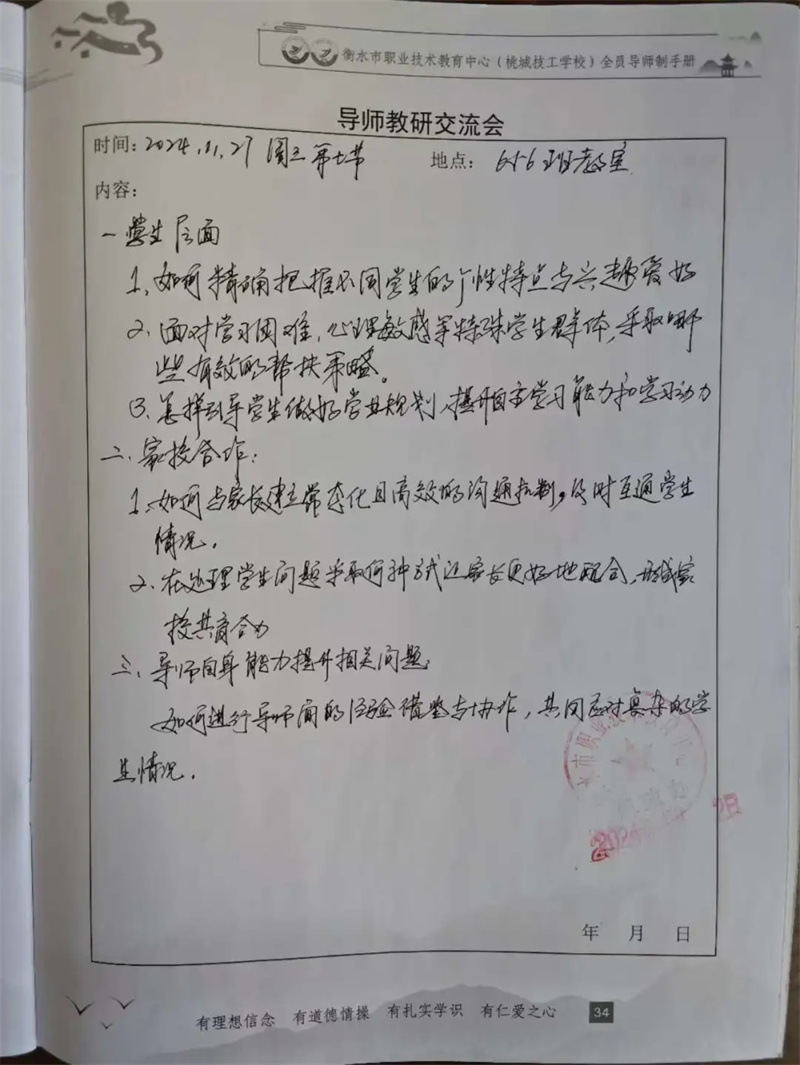 衡水市职业技术教育中心（桃城技工学校）全员导师制手册
导师教研交流会
时间：2024.11.27 周三第七节 地点：656班教室
内容：
一学生层面
1、如何精确把握不同学生的个性特点与兴趣爱好
2、面对学习困难，心理敏感等特殊学生群体，采取哪
些有效的帮扶策略。
3、怎样引导学生做好学业规划，提升自主学习能力和学习动力
二、家校合作：
1、如何与家长建立常态化且高效的沟通机制，及时互通学生
情况。
2、在处理学生问题采取何种方式让家长更好地配合，形成家
校共育合力
三、导师自身能力提升相关问题
如何进行导师间的经验借鉴与协作，共同应对复杂的学
生情况。
水市职业技术
2024 2日
年 月 日
有理想信念 有道德情操 有扎实学识 有仁爱之心 34